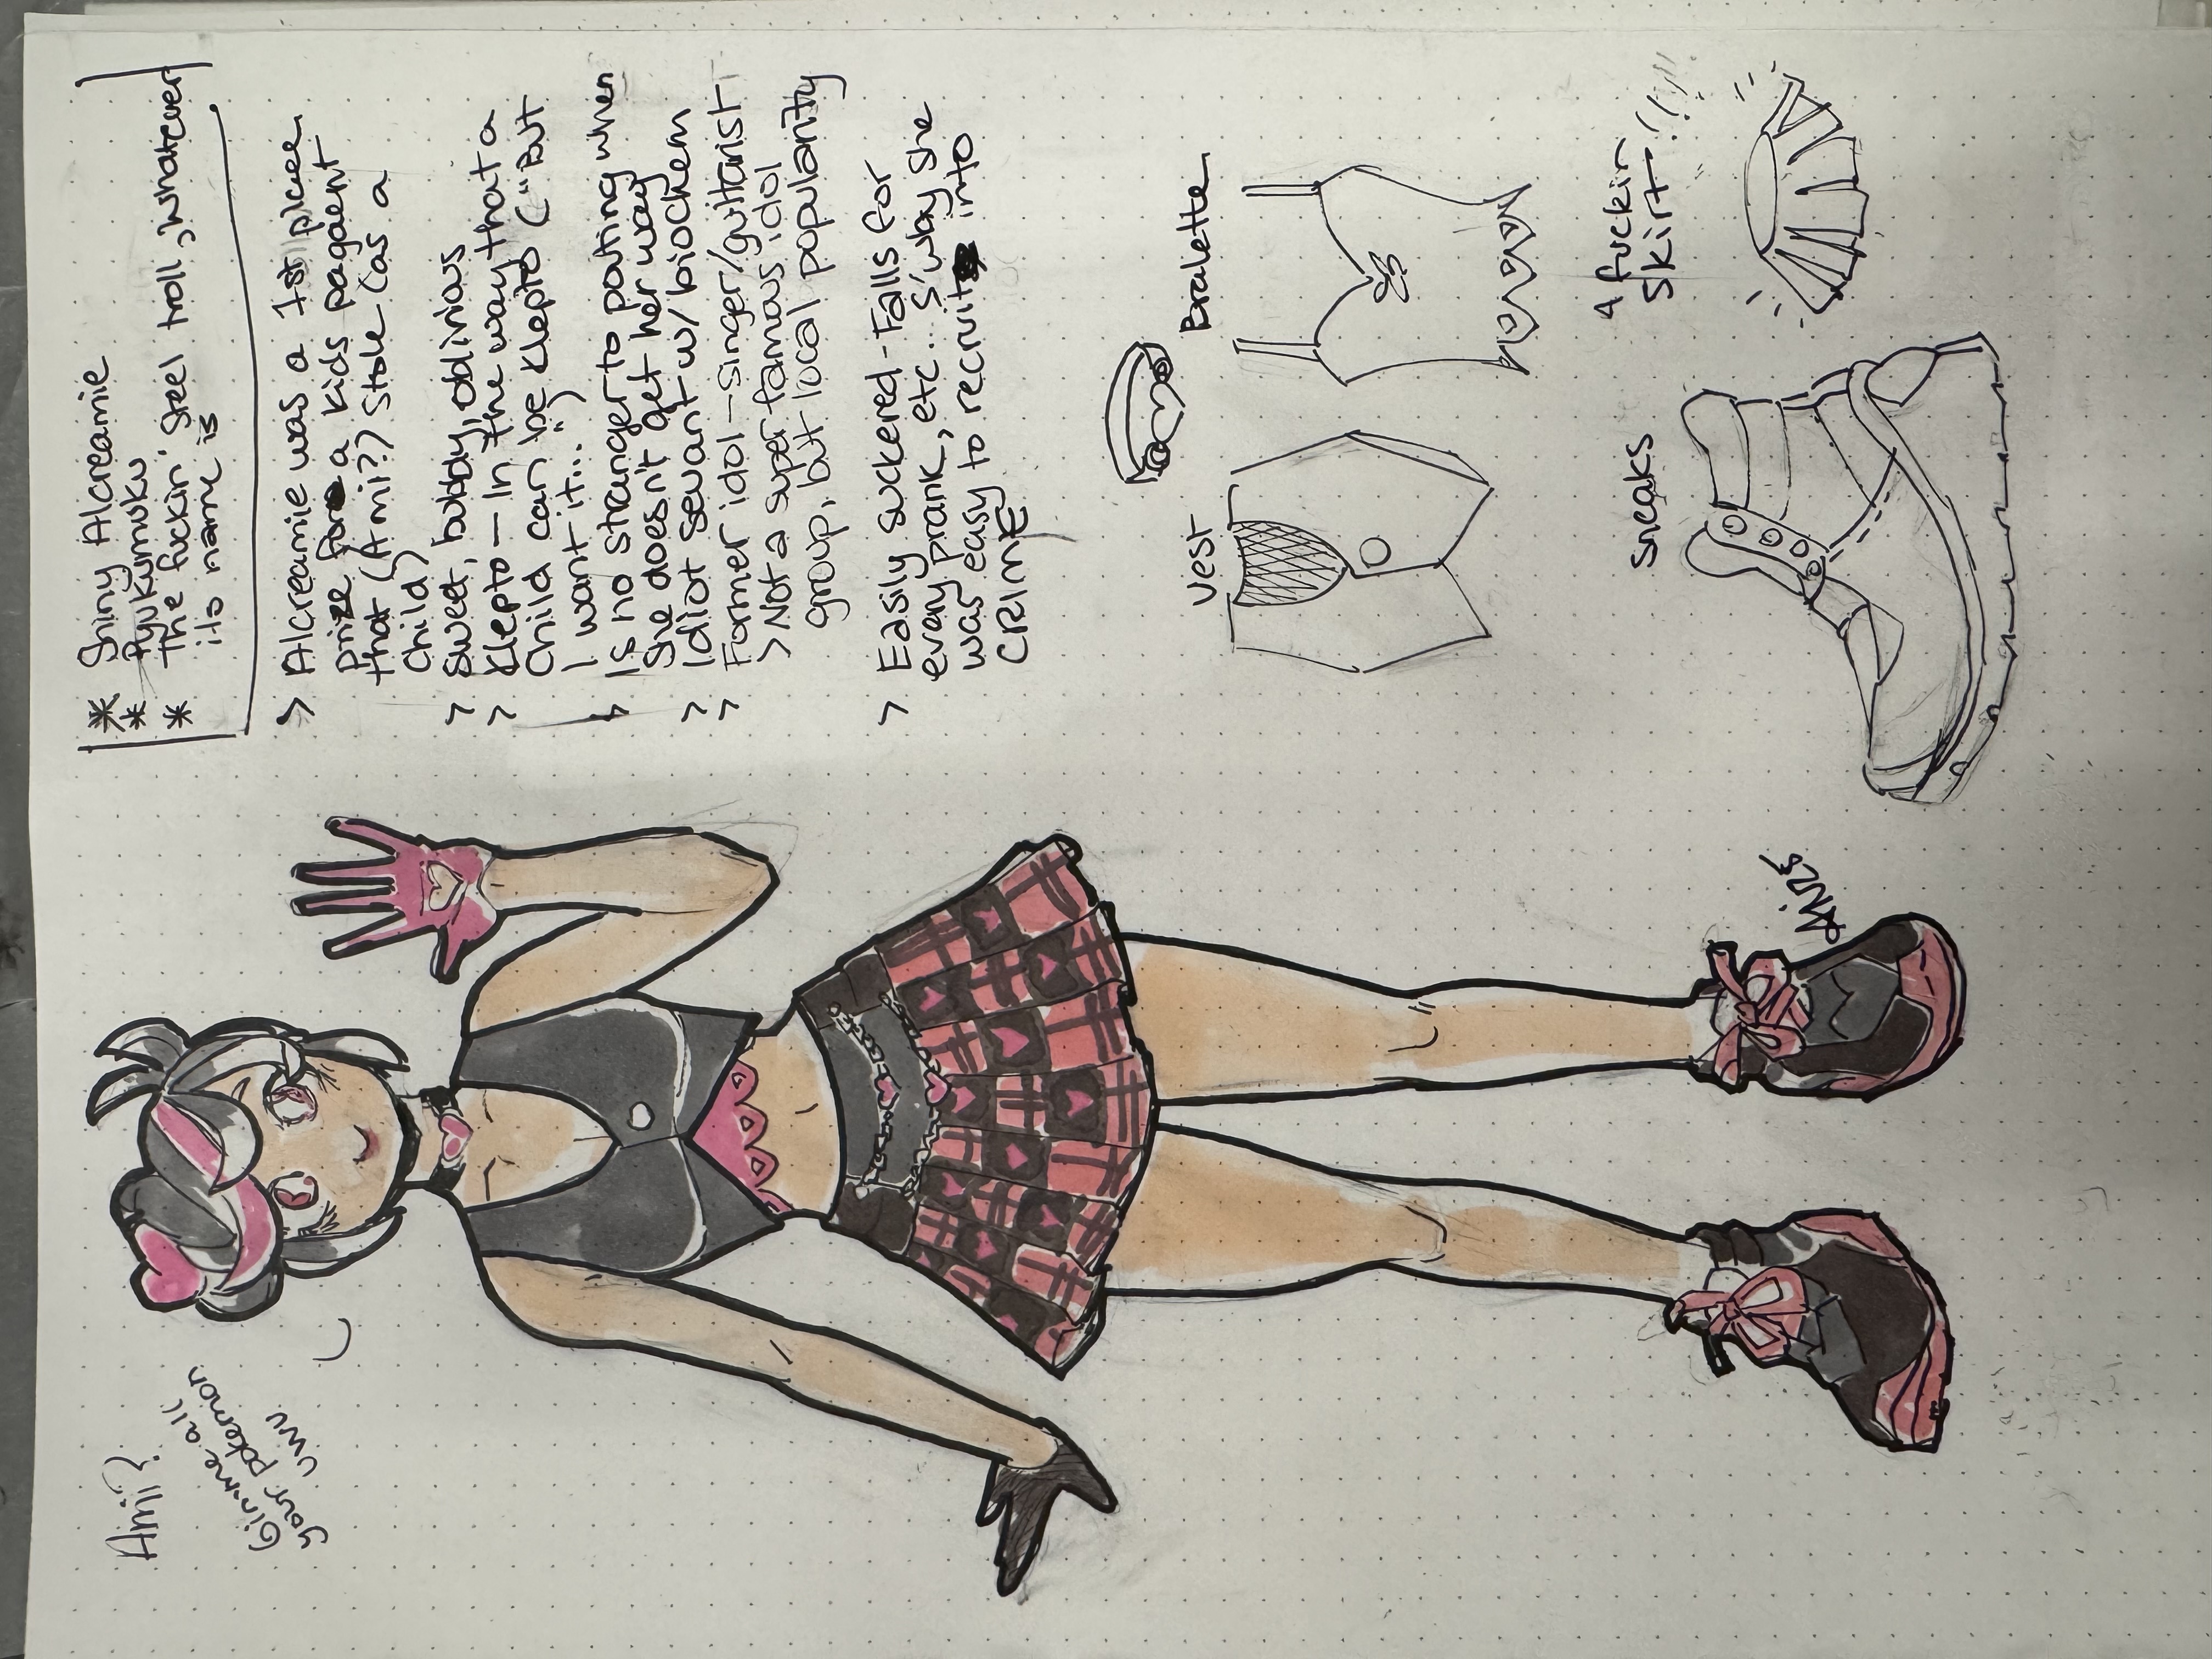 Ami?
Gimme all
your pokemon
UWU
* Shiny Alcreamie
* Pyukumuku
* The fuckin' steel troll, whatever
its name is
> Alcreamie was a 1st place
prize for a kids pagaent
that (Ami??) stole (as a
child)
> Sweet, bubbly, oblivious
> Klepto - In the way that a
child can be klepto ("But
I want it...")
↳ Is no stranger to pouting when
she doesn't get her way
> Idiot sevant w/ biochem
> Former idol - singer/guitarist
> Not a super famous idol
group, but local popularity
> Easily suckered - Falls for
every prank, etc... S'way she
was easy to recruit into
CRIME
Vest
Bralette
Sneaks
A fuckin
skirt!!!